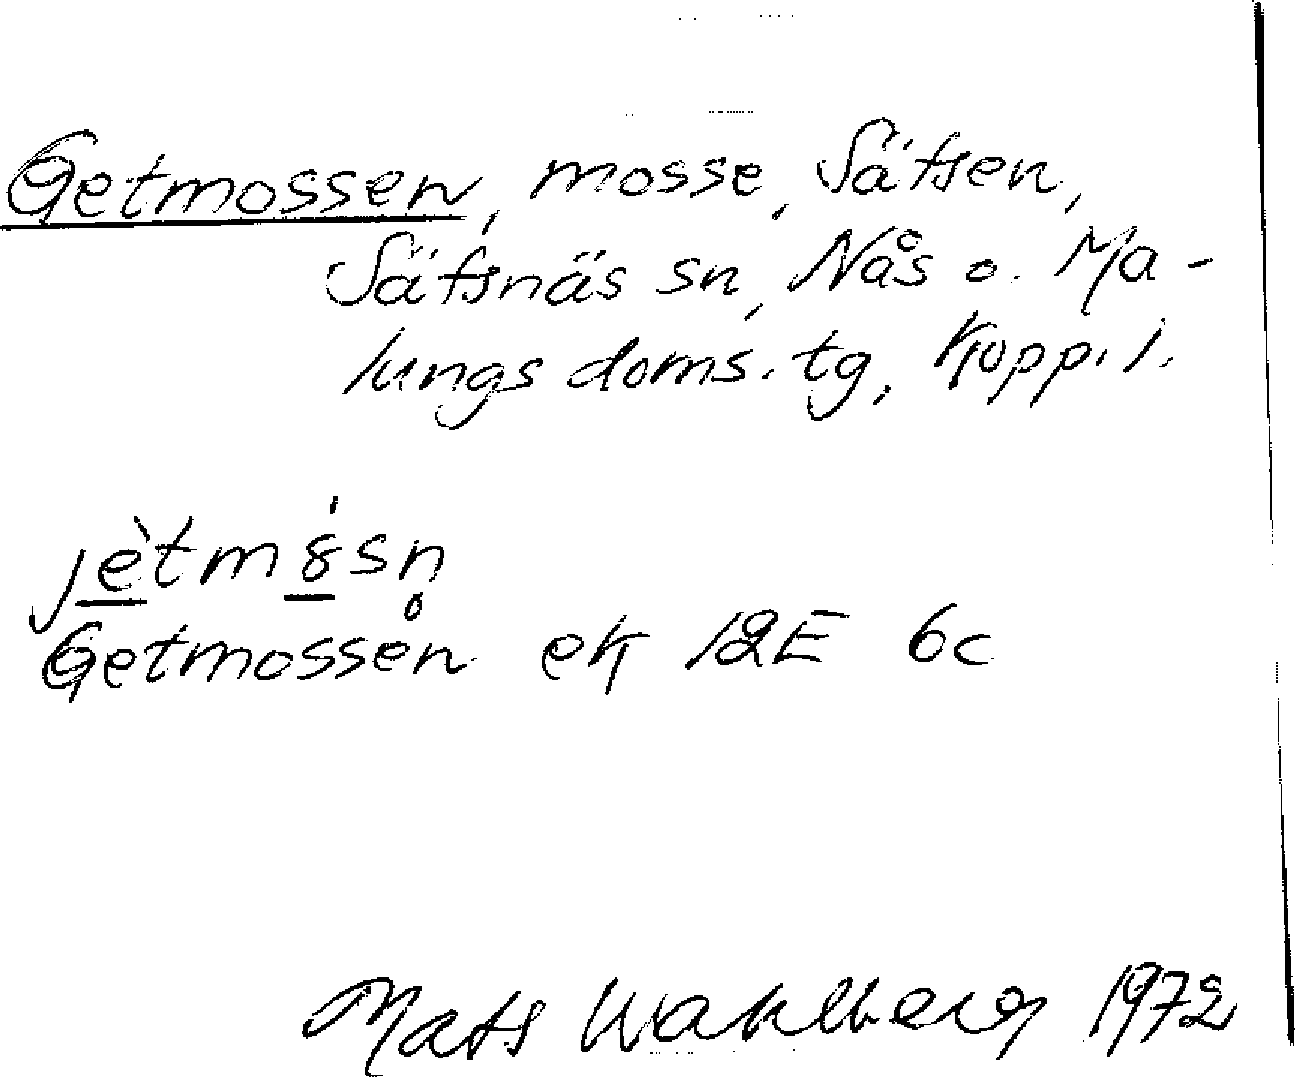 Getmossen, mosse, Sätsen,
Sätsnäs sn, Nås o. Ma-
lungs doms. tg, Kopp. l.
jètm8́sn̥
Getmossen ek 12E 6c
Mats Wahlberg 1972